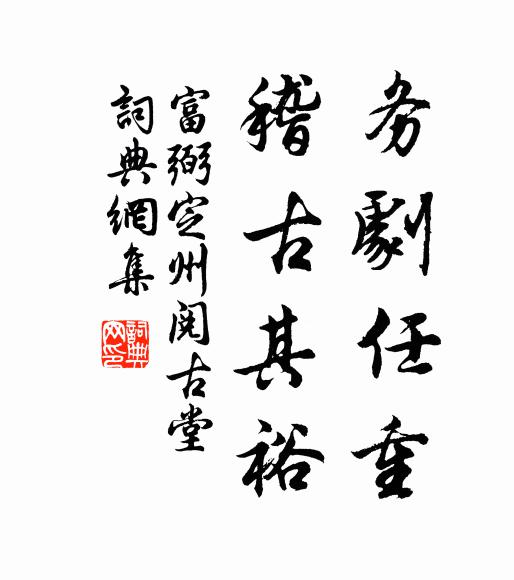 务劇任重
稽古其裕
富弼定州阅古堂
詞典網集
詞典网印